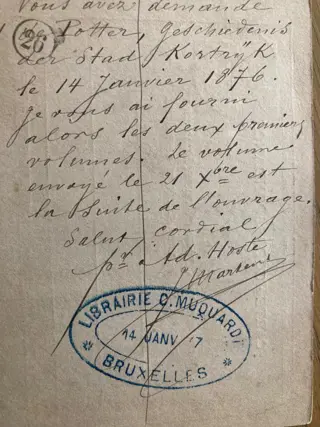 Vous avez demandé
26 Potter, Geschiedenis
der Stad Kortrijk
le 14 Janvier 1876.
Je vous ai fourni
alors les deux premiers
volumes. Le volume
envoyé le 21 Xbre est
la suite de l'ouvrage.
Salut cordial
pr. Ad. Hoste
J Martens
* LIBRAIRIE C. MUQUARDT *
14 JANV 7
BRUXELLES